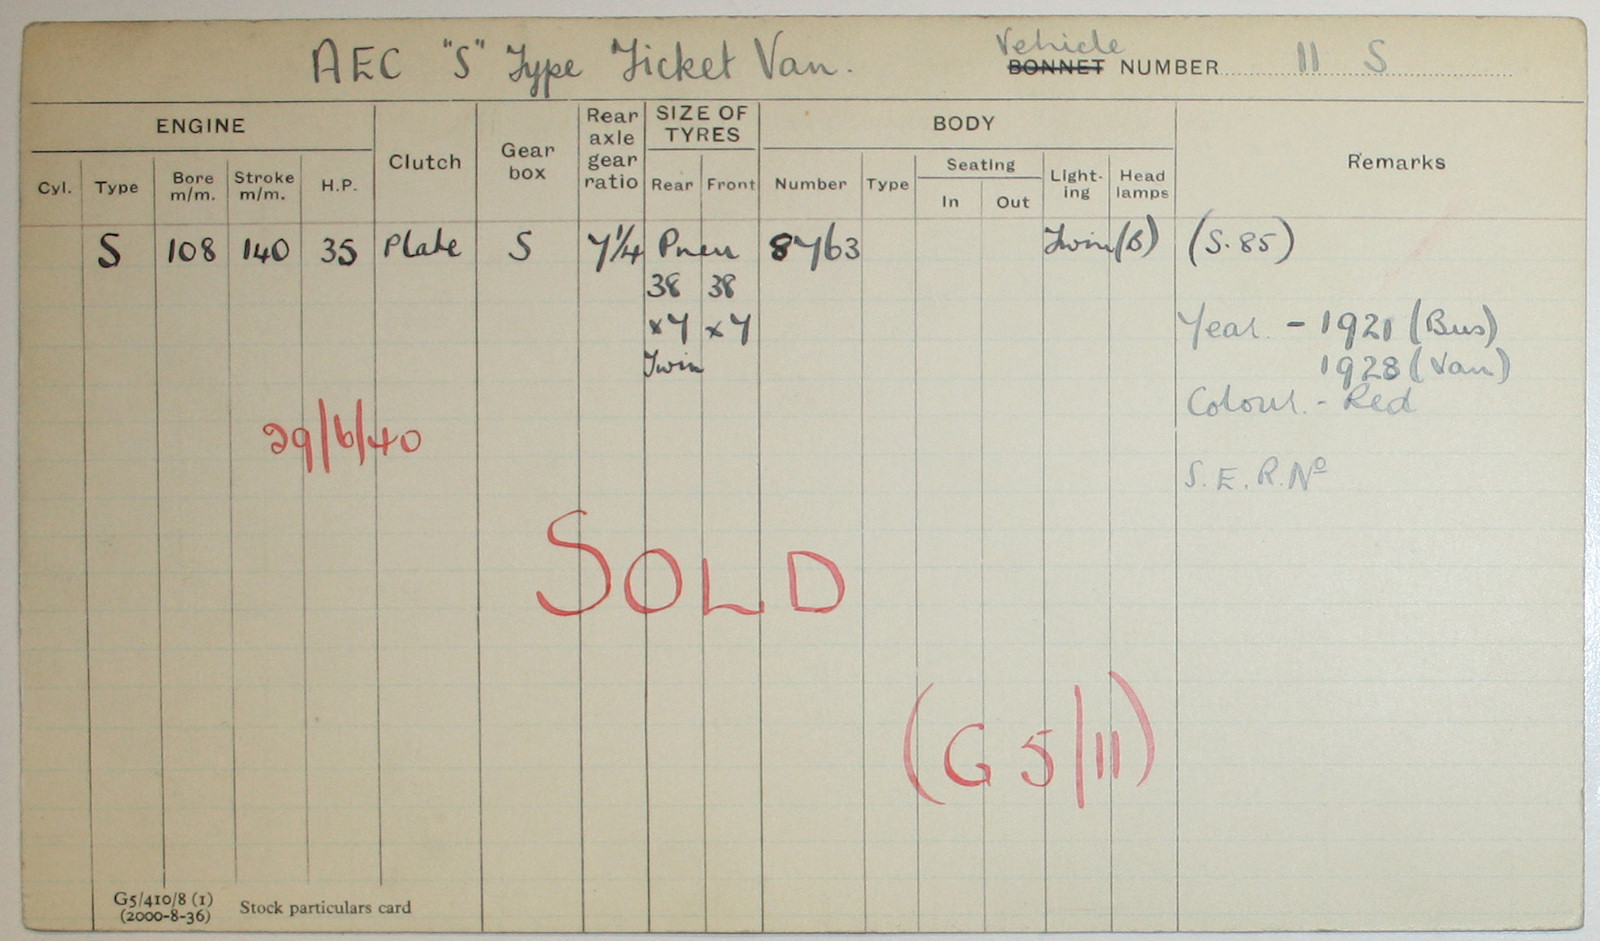 AEC "S" Type Ticket Van.
Vehicle
BONNET NUMBER 11 S
ENGINE Clutch Gear box Rear axle gear ratio SIZE OF TYRES BODY Remarks
Cyl. Type Bore m/m. Stroke m/m. H.P. Rear Front Number Type Seating In Out Light-ing Head lamps
S 108 140 35 Plate S 7¼ Pneu 8763 Twin (B) (S.85)
38 38
x7 x7
Twin
Year. - 1921 (Bus)
1928 (Van)
Colour. - Red
29/6/40
S.E.R.Nº
SOLD
(G 5/11)
G5/410/8 (1)
(2000-8-36) Stock particulars card